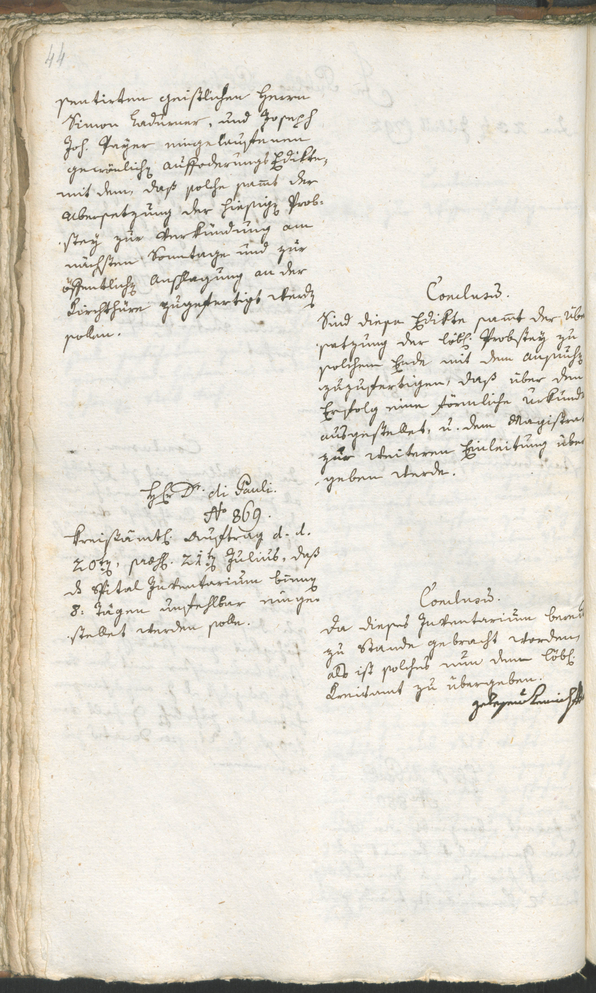 44
sentirten geistlichen Herrn
Simon Ladurner, und Joseph
Joh. Payer eingelauffenen
gewönlichen Auffoderungs Edikte,
mit dem, daß solche samt der
Übersetzung der hiesigen Prob-
stey zur Verkündung am
nächsten Sonntage und zur
öffentlichen Anschlagung an der
Kirchthüre zugefertigt werden
sollen.
Conclusum.
Sind diese Edikte samt der Übe
setzung der löbl. Probstey zu
solchem Ende mit dem Ansuchen
zuzufertigen, daß über den
Erfolg eine förmliche Urkunde
ausgestellet, u. dem Magistrat
zur weiteren Einleitung über
geben werde.
H. Dr. di Pauli.
No 869.
Kreisämtl. Auftrag d. d.
20ten, präs. 21ten Julius, daß
ds Spital Inventarium binnen
8. Tägen unfehlbar einge-
stellet werden solle.
Conclusum.
Da dieses Inventarium bereits
zu Stande gebracht worden,
als ist solches nun dem löbl.
Kreisamt zu übergeben.